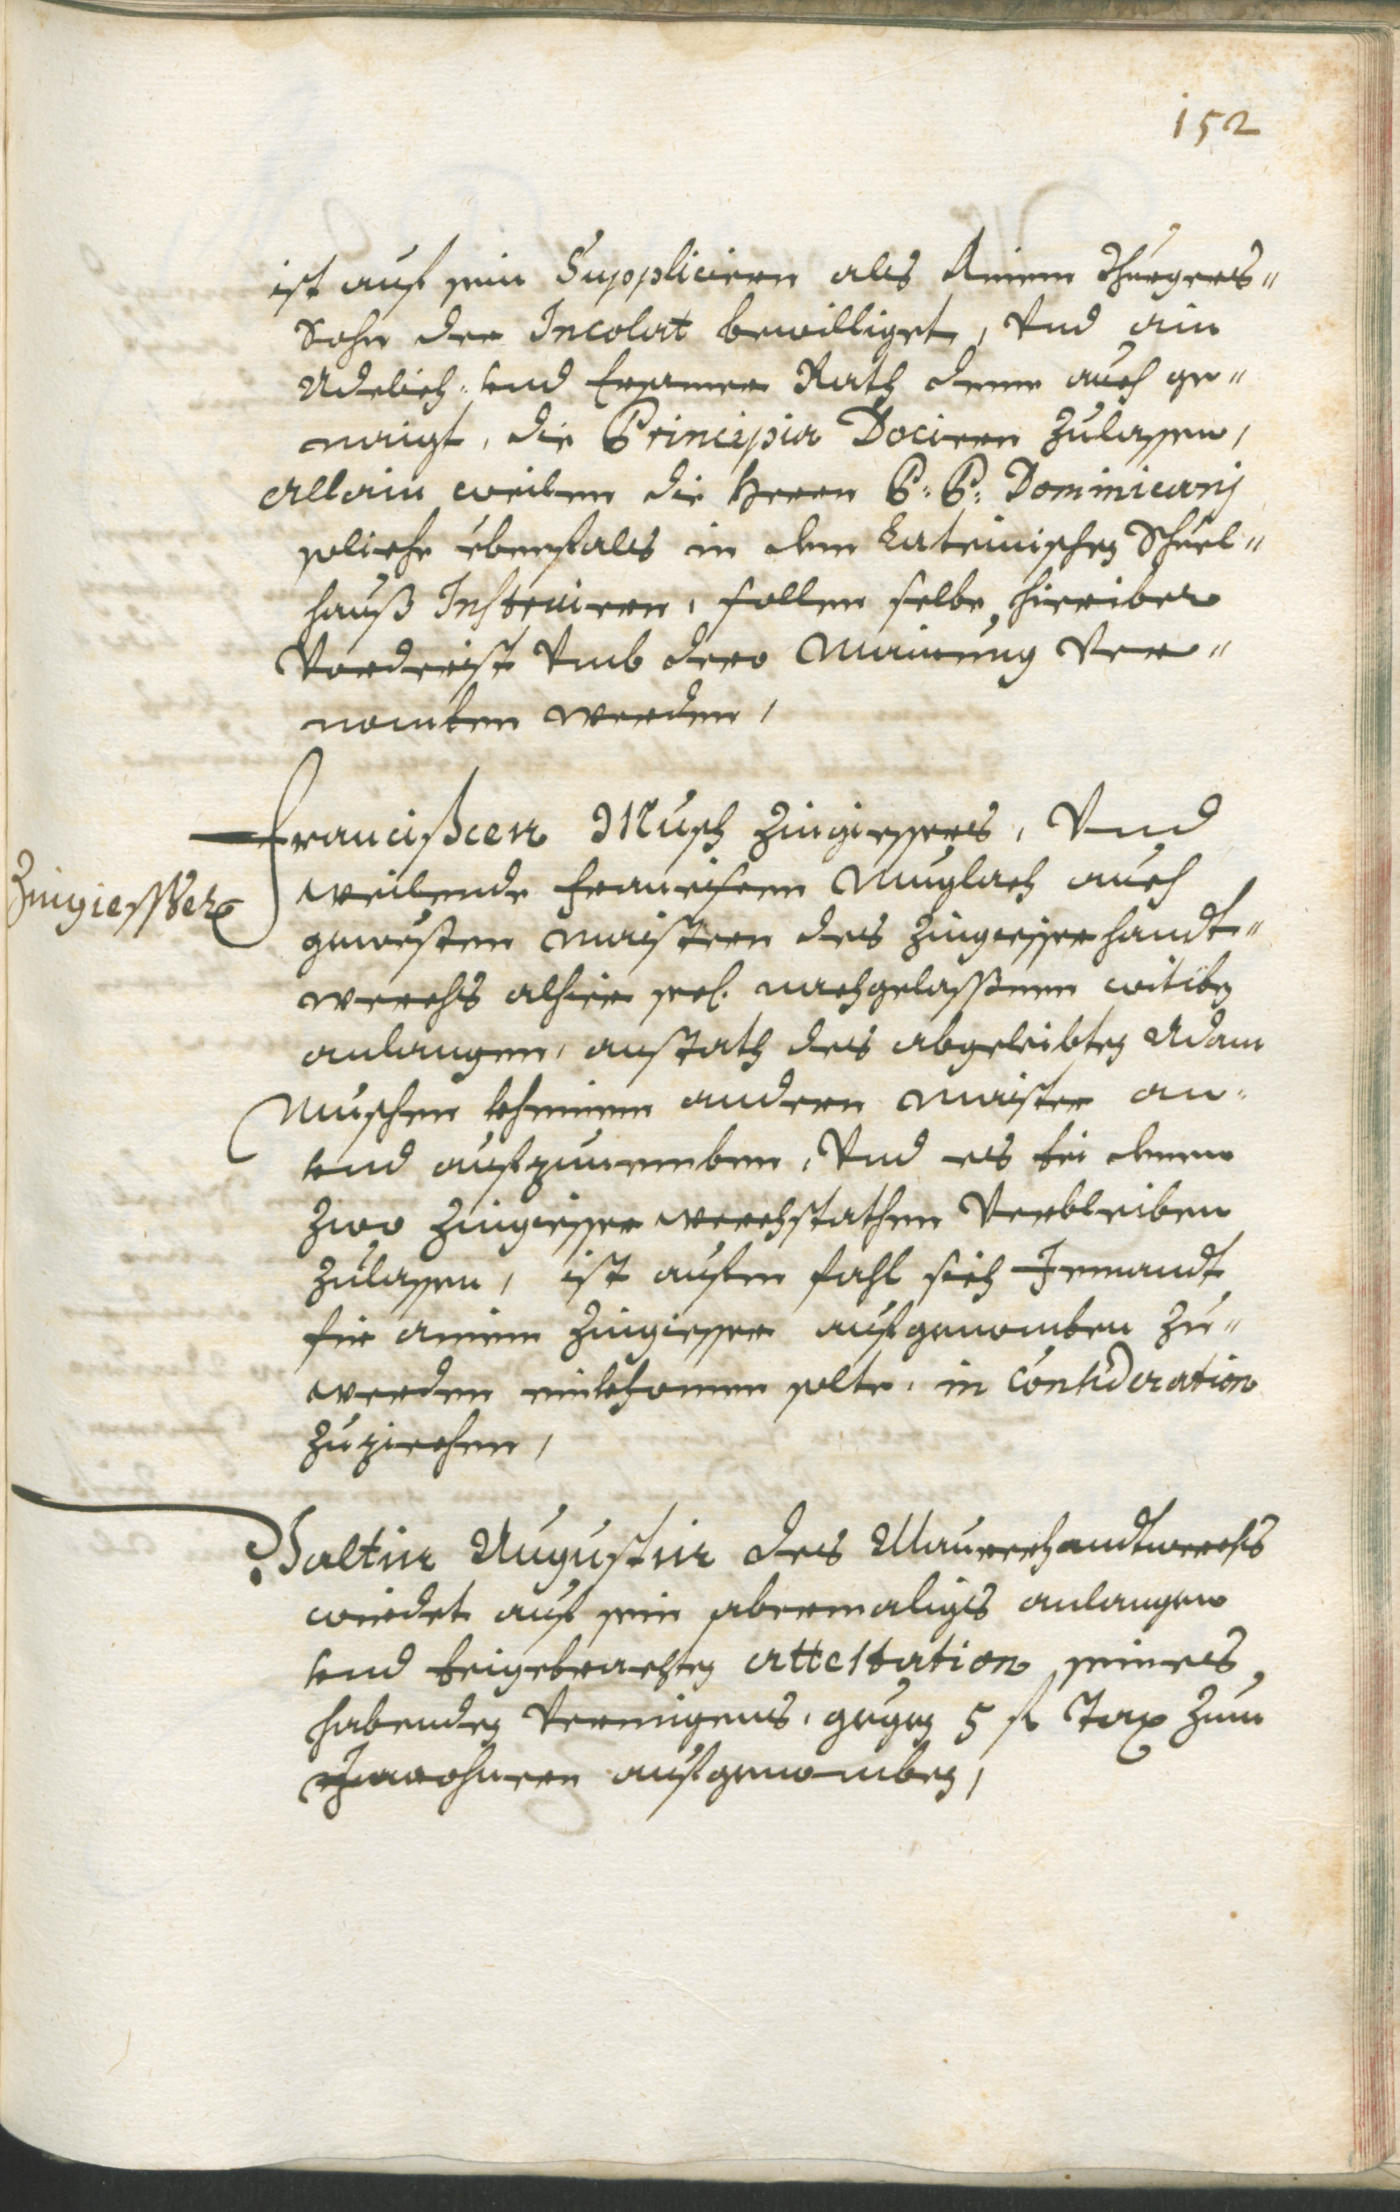 152
ist auf sein Supplicieren als Einem Burgers"
Sohn der Incolat bewilliget, Und ain
Adelich- und Ersamer Rath deme auch ge"
naigt, die Principia Docieren zulassen,
allain weilen die Herrn P: P: Dominicanj
solche ebenfals in dem Lateinischen Schuel"
hauß Instruieren, sollen selbe hieriber
Vordrist Umb dero Mainung Ver"
nomben werden,
Francißcen Musch Zingiessers, Und
Zingiesser
weilende Francisen Muglach auch
gewesten Maistern des Zingiesser handt"
werchs alhier seel. nachgelassnen witib
anlangen, anstath des abgeleibten Adam
Muschen kheinen andern Maister an-
und aufzunemben, Und es bei denen
zwo Zingiesser werchstathen Verbleiben
zulassen, ist auf den fahl sich Jemandt
für ainen Zingiesser aufgenomben zu"
werden einkhomen solte, in Consideration
zuziechen,
Valtin Augustin des Maurerhandtwerchs
wirdet auf sein abermaliges anlangen
und beigebrachten attestation seines
habenden Vermigens, gegen 5 fl Tax zum
Inwohnern aufgenomben,